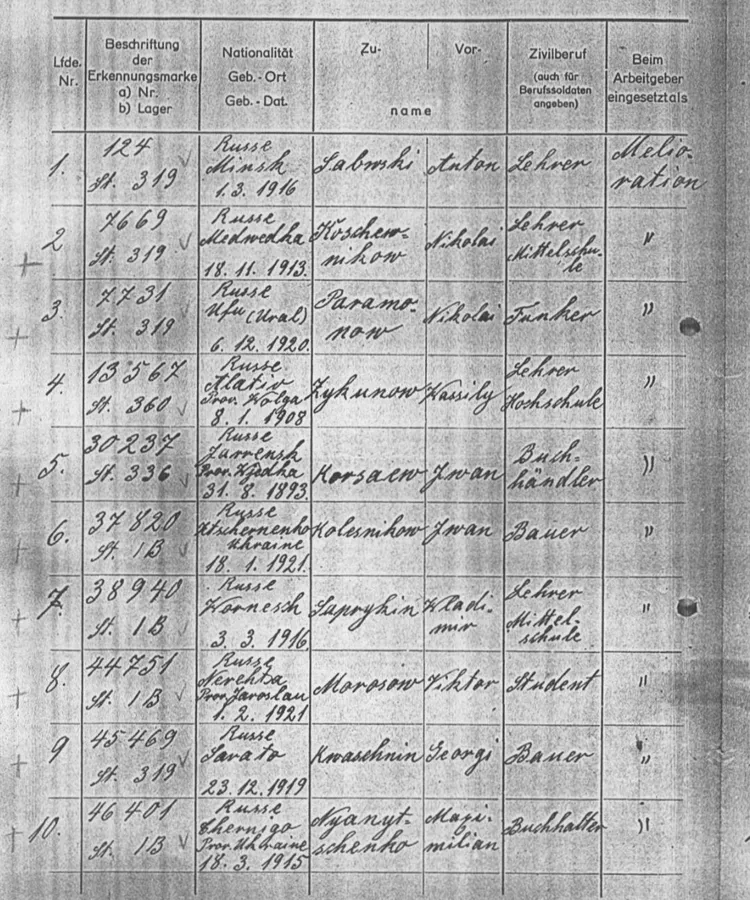 Lfde. Nr.
Beschriftung der Erkennungsmarke a) Nr. b) Lager
Nationalität Geb.-Ort Geb.-Dat.
Zu- Vor- name
Zivilberuf (auch für Berufssoldaten angeben)
Beim Arbeitgeber eingesetzt als
1. 124 Russe Sabwski Anton Lehrer Melio-
St. 319 Minsk ration
1. 3. 1916
2 7669 Russe Koschew- Nikolai Lehrer "
St. 319 Medwedka nikow Mittelschu-
18. 11. 1913. le
3. 7731 Russe Paramo- Nikolai Funker "
St. 319 Ufu (Ural) now
6. 12. 1920.
4. 13567 Russe Zykunow Wassily Lehrer "
St. 360 Alativ Hochschule
Prov. Wolga
8. 1. 1908
5. 30237 Russe Korsaew Jwan Buch- "
St. 336 Jarrensk händler
Prov.
31. 8. 1893.
6. 37820 Russe Kolesnikow Jwan Bauer "
St. 1B
Ukraine
18. 1. 1921.
7. 38940 Russe Saprykin Wladi- Lehrer "
St. 1B Wornesch mir Mittel-
3. 3. 1916. schule
8. 44751 Russe Morosow Viktor Student "
St. 1B Nerehta
Prov. Jaroslau
1. 2. 1921
9 45469 Russe Kwaschnin Georgi Bauer "
St. 319 Sarato
23. 12. 1919
10. 46401 Russe Nyanyt- Maxi- Buchhalter "
St. 1B Chernigo schenko milian
Prov. Ukraine
18. 3. 1915